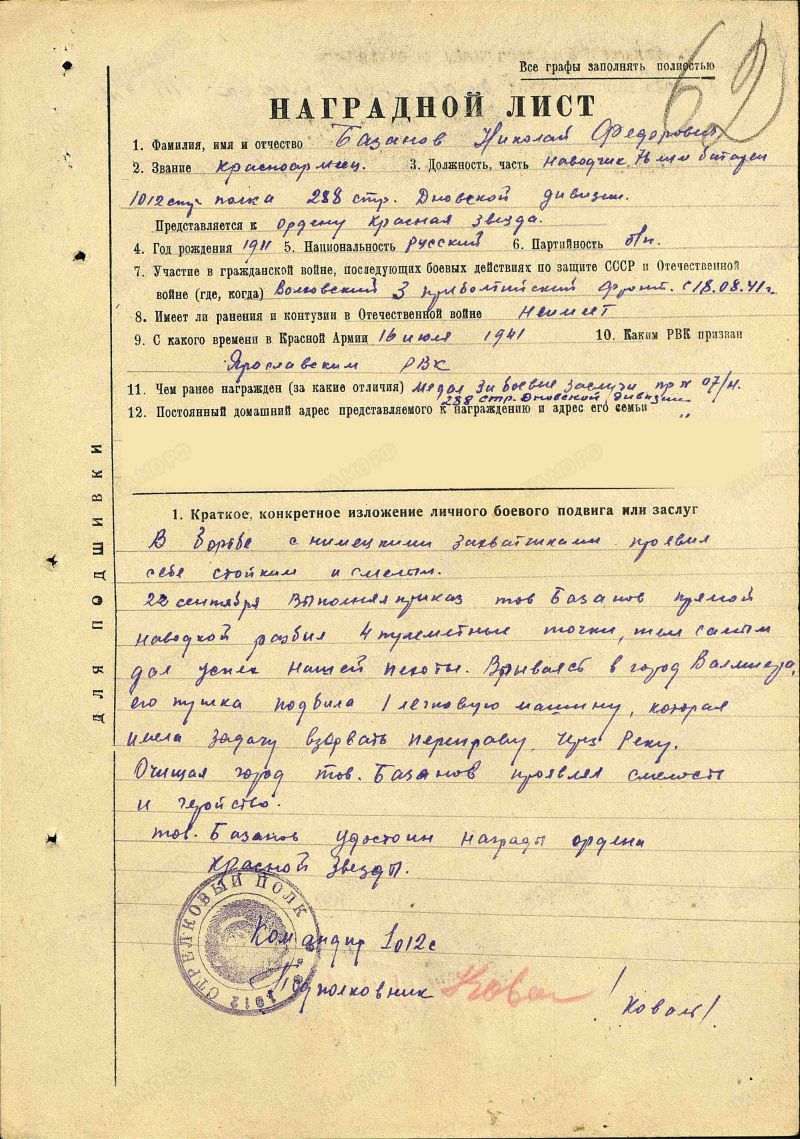 62
Все графы заполнять полностью
НАГРАДНОЙ ЛИСТ
1. Фамилия, имя и отчество Базанов Николай Федорович
2. Звание Красноармеец. 3. Должность, часть Наводчик 76 мм батареи
1012 стр полка 288 стр. Дновской дивизии.
Представляется к ордену Красная Звезда.
4. Год рождения 1911 5. Национальность русский 6. Партийность б/п.
7. Участие в гражданской войне, последующих боевых действиях по защите СССР и Отечественной
войне (где, когда) Волховский 3 прибалтийский фронт. с 18.08.41г
8. Имеет ли ранения и контузии в Отечественной войне Неимеет
9. С какого времени в Красной Армии 16 июля 1941 10. Каким РВК призван
Ярославским РВК
11. Чем ранее награжден (за какие отличия) Медал За боевые заслуги пр № 07/н.
288 стр. Дновской дивизии
12. Постоянный домашний адрес представляемого к награждению и адрес его семьи „
ДЛЯ ПОДШИВКИ
1. Краткое, конкретное изложение личного боевого подвига или заслуг
В борьбе с нимецкими захватчиками проявил
себя стойким и смелым.
22 сентября выполняя приказ тов Базанов прямой
наводкой разбил 4 пулеметные точки, тем самым
дал успех нашей пехоты. Врываясь в город Валмиера,
его пушка подбила 1 легковую машину, которая
имела задачу взорвать переправу через Реку.
Очищая город тов. Базанов проявлял смелость
и геройство.
тов. Базанов удостоин награды ордена
Красной Звезды.
1012 СТРЕЛКОВЫЙ ПОЛК
Командир 1012с
Подполковник Ковал / Коваль /